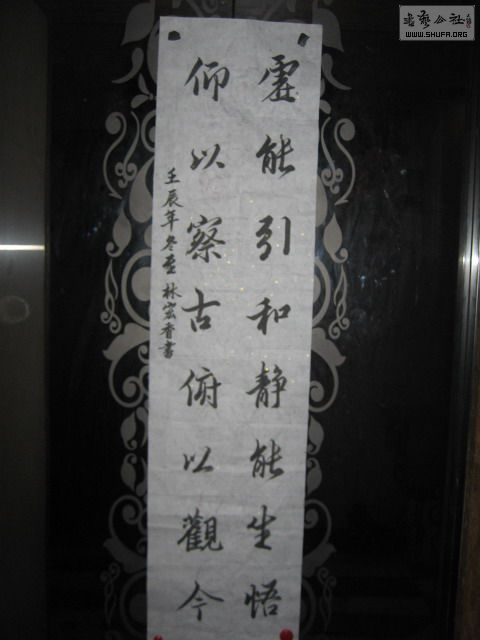 虚能引和静能生悟
仰以察古俯以觀今
壬辰年冬至 林宏香書
书艺公社
WWW.SHUFA.ORG